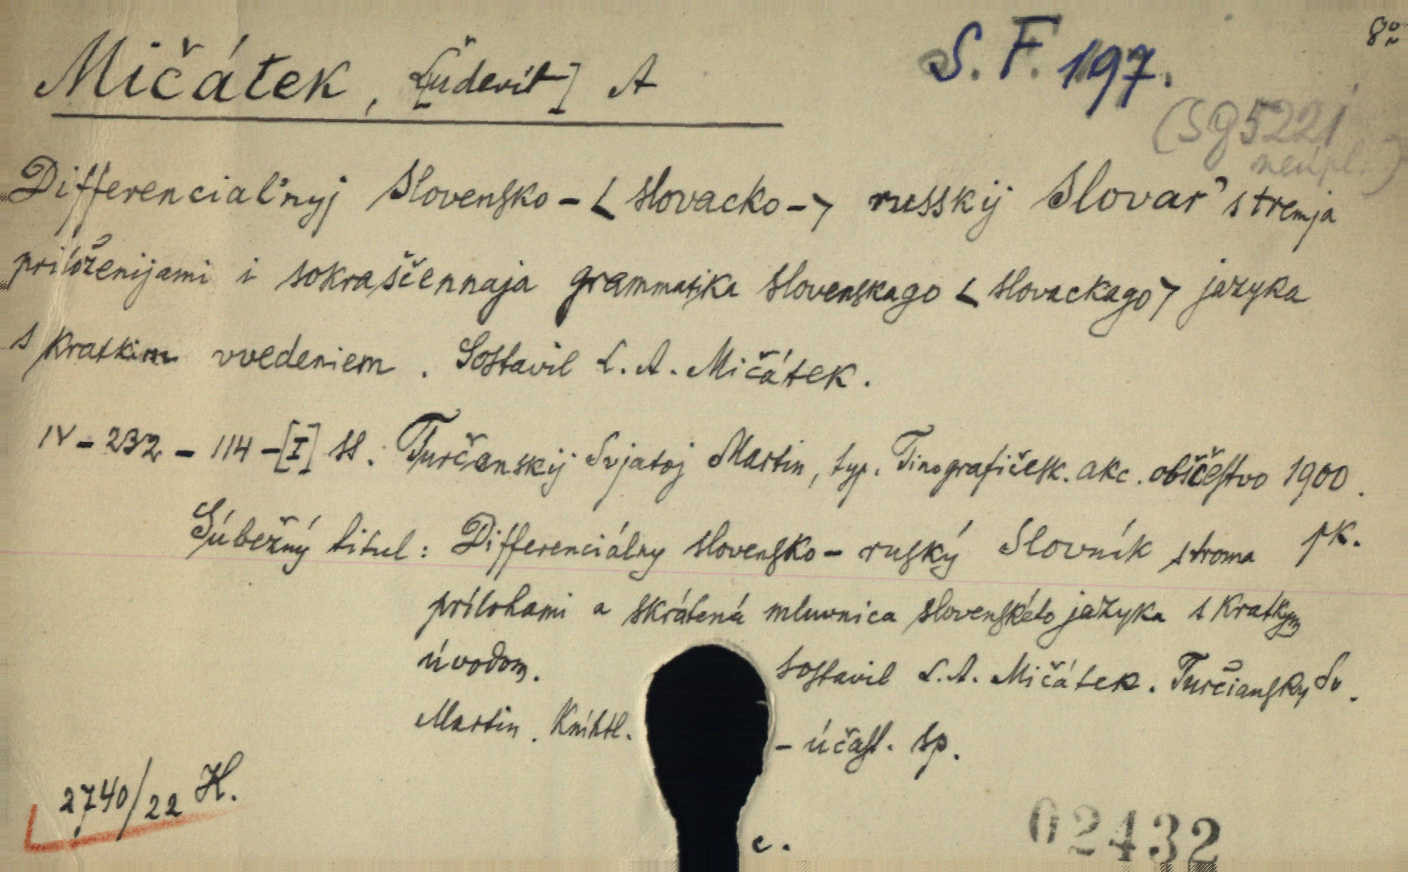 8°
S. F. 197.
Mičátek, [Ľudevít] A
(Sg5221
neúpl.)
Differencial'nyj Slovensko-<slovacko-> russkij Slovar' s tremja
priloženijami i sokraščennaja grammatika slovenskago <slovackago> jazyka
s kratkim vvedeniem. Sostavil L. A. Mičátek.
IV - 232 - 114 - [I] ss. Turčanskij Svjatoj Martin, typ. Tipografičesk. akc. obščestvo 1900.
Súbežný titul: Differenciálny slovensko-ruský Slovník stroma pk.
prílohami a skrátená mluvnica slovenského jazyka s kratkym
úvodom. Sostavil L. A. Mičátek. Turčiansky Sv.
Martin. Kníhtl. - účast. sp.
2740/22 H.
c.
02432